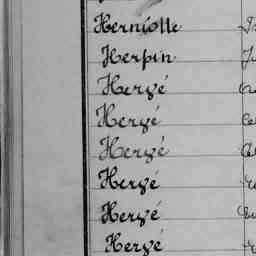 Herniotte
Herpin
Hervé
Hervé
Hervé
Hervé
Hervé
Hervé